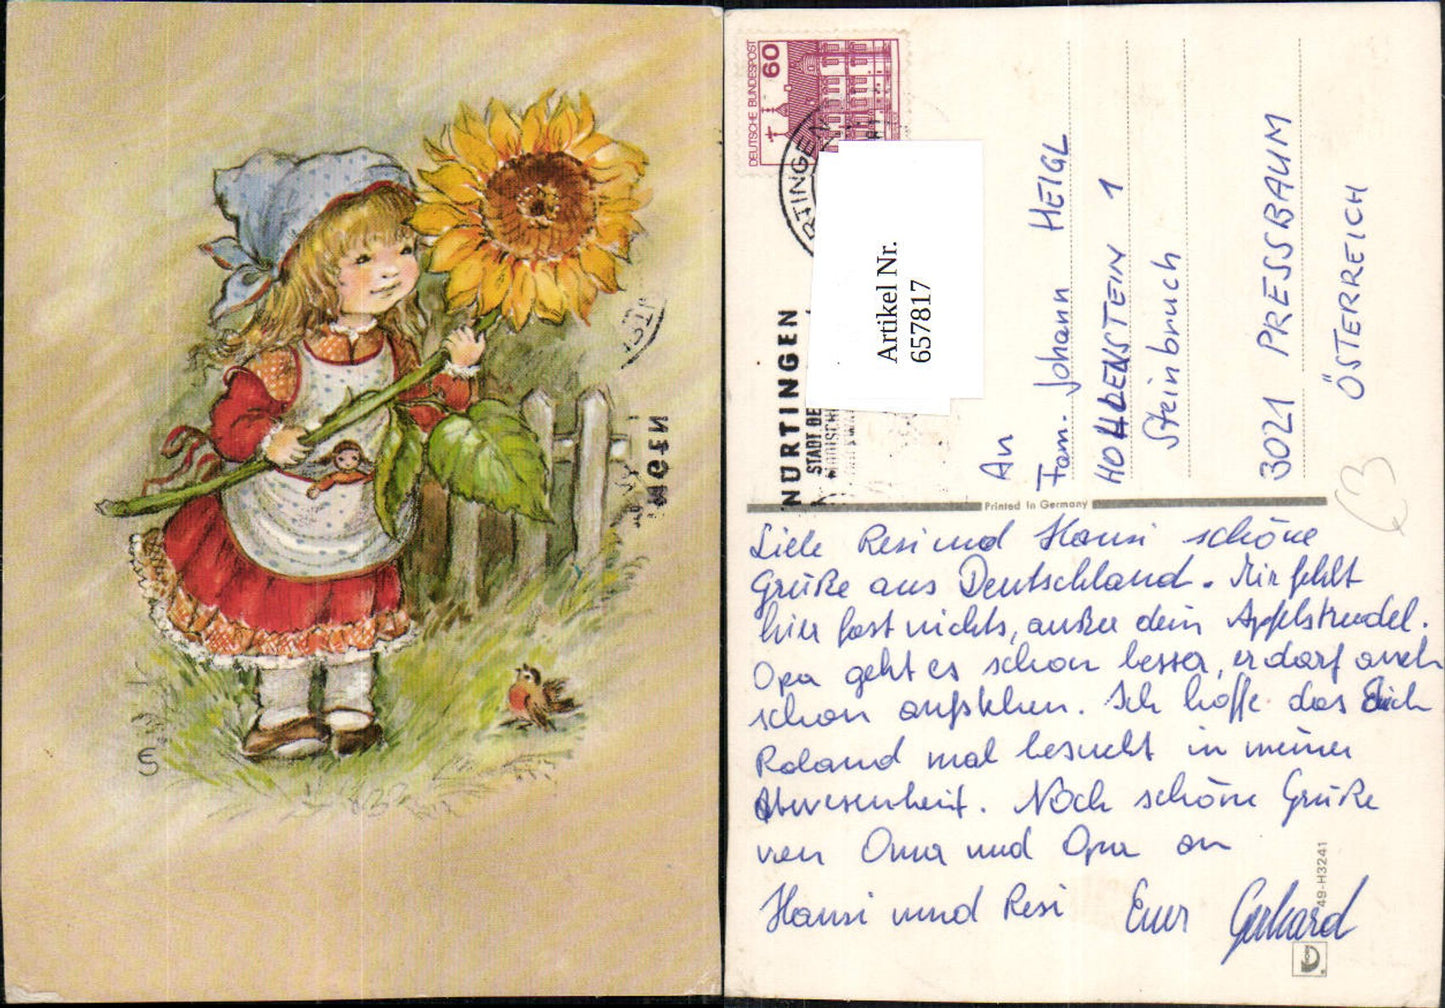 DEUTSCHE BUNDESPOST
60
NÜRTINGEN
STADT DE
Artikel Nr.
657817
An
Fam. Johann HEIGL
HOLLENSTEIN 1
Steinbruch
3021 PRESSBAUM
ÖSTERREICH
Printed in Germany
Liebe Resi und Hansi schöne
Grüße aus Deutschland. Mir fehlt
hier fast nichts, außer dein Apfelstrudel.
Opa geht es schon besser, er darf auch
schon aufstehen. Ich hoffe das Dich
Roland mal besucht in meiner
Abwesenheit. Noch schöne Grüße
von Oma und Opa an
Hansi und Resi Euer Gerhard
49-H3241